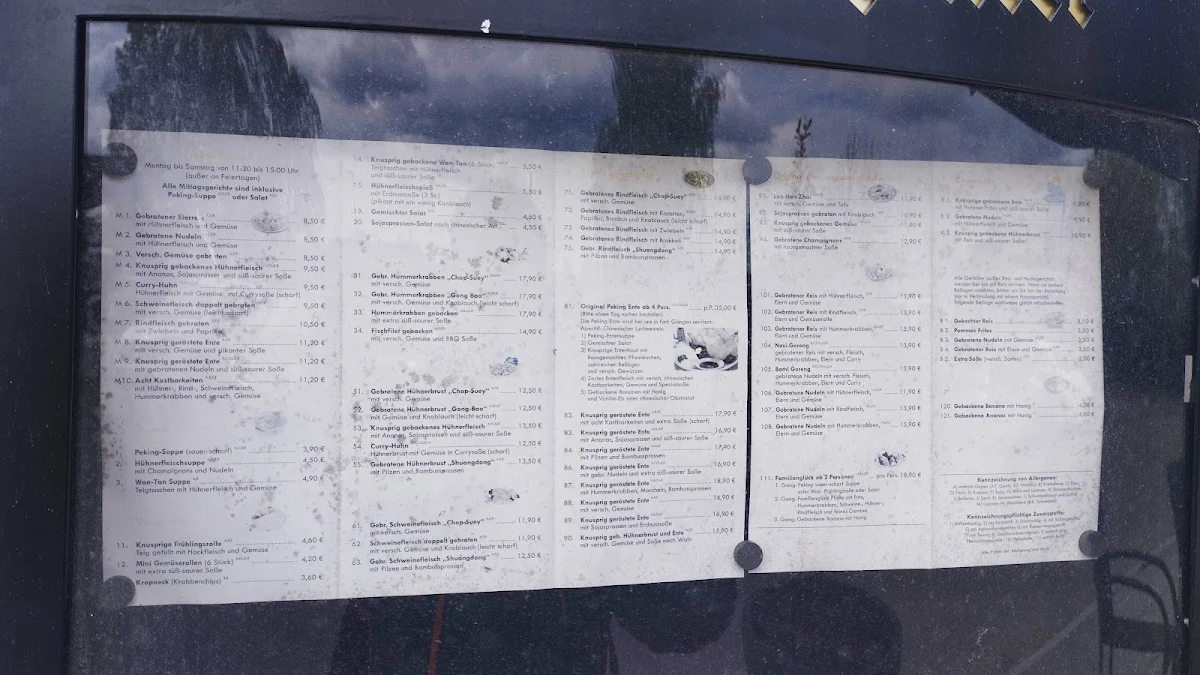 Montag bis Samstag von 11:30 bis 15:00 Uhr
(außer an Feiertagen)
Alle Mittagsgerichte sind inklusive
Peking-Suppe oder Salat
M 1. Gebratener Eierreis 8,50 €
mit Hühnerfleisch und Gemüse
M 2. Gebratene Nudeln 8,50 €
mit Hühnerfleisch und Gemüse
M 3. Versch. Gemüse gebraten 8,50 €
M 4. Knusprig gebackenes Hühnerfleisch 9,50 €
mit Ananas, Sojasprossen und süß-saurer Soße
M 5. Curry-Huhn 9,50 €
Hühnerfleisch mit Gemüse, mit Currysoße (scharf)
M 6. Schweinefleisch doppelt gebraten 9,50 €
mit versch. Gemüse (leicht scharf)
M 7. Rindfleisch gebraten 10,50 €
mit Zwiebeln und Paprika
M 8. Knusprig geröstete Ente 11,20 €
mit versch. Gemüse und pikanter Soße
M 9. Knusprig geröstete Ente 11,20 €
mit gebratenen Nudeln und süß-saurer Soße
M10. Acht Kostbarkeiten 11,20 €
mit Hühner-, Rind-, Schweinefleisch,
Hummerkrabben und versch. Gemüse
Peking-Suppe (sauer-scharf) 3,90 €
2. Hühnerfleischsuppe 4,50 €
mit Champignons und Nudeln
3. Wan-Tan Suppe 4,90 €
Teigtaschen mit Hühnerfleisch und Gemüse
11. Knusprige Frühlingsrolle 4,60 €
Teig gefüllt mit Hackfleisch und Gemüse
12. Mini Gemüserollen (6 Stück) 4,20 €
mit extra süß-saurer Soße
Kropoeck (Krabbenchips) 3,60 €
14. Knusprig gebackene Wan-Tan (6 Stück) 5,50 €
Teigtaschen mit Hühnerfleisch
und süß-saurer Soße
15. Hühnerfleischspieß 5,50 €
mit Erdnussoße (3 St.)
(pikant mit ein wenig Knoblauch)
19. Gemischter Salat 4,50 €
20. Sojasprossen-Salat nach chinesischer Art 4,50 €
31. Gebr. Hummerkrabben „Chop-Suey“ 17,90 €
mit versch. Gemüse
32. Gebr. Hummerkrabben „Gong Bao“ 17,90 €
mit versch. Gemüse und Knoblauch (leicht scharf)
33. Hummerkrabben gebacken 17,90 €
mit extra süß-saurer Soße
34. Fischfilet gebacken 14,90 €
mit versch. Gemüse und BBQ Soße
51. Gebratene Hühnerbrust „Chop-Suey“ 12,50 €
mit versch. Gemüse
52. Gebratene Hühnerbrust „Gong-Bao“ 12,50 €
mit Gemüse und Knoblauch (leicht scharf)
53. Knusprig gebackenes Hühnerfleisch 13,50 €
mit Ananas, Sojasprossen und süß-saurer Soße
54. Curry-Huhn 12,50 €
Hühnerbrust mit Gemüse in Currysoße (scharf)
55. Gebratene Hühnerbrust „Shuangdong“ 13,50 €
mit Pilzen und Bambussprossen
61. Gebr. Schweinefleisch „Chop-Suey“ 11,90 €
mit versch. Gemüse
62. Schweinefleisch doppelt gebraten 11,90 €
mit versch. Gemüse und Knoblauch (leicht scharf)
63. Gebr. Schweinefleisch „Shuangdong“ 12,50 €
mit Pilzen und Bambussprossen
71. Gebratenes Rindfleisch „Chop-Suey“ 14,90 €
mit versch. Gemüse
72. Gebratenes Rindfleisch mit Karotten, 14,90 €
Paprika, Bambus und Knoblauch (leicht scharf)
73. Gebratenes Rindfleisch mit Zwiebeln 14,90 €
74. Gebratenes Rindfleisch mit Brokkoli 14,90 €
Gebr. Rindfleisch „Shuangdong“ 14,90 €
mit Pilzen und Bambussprossen
81. Original Peking Ente ab 4 Pers. p.P. 35,00 €
(Bitte einen Tag vorher bestellen)
Die Peking-Ente wird bei uns in fünf Gängen serviert:
Aperitif: Chinesischer Lycheewein
1) Peking-Entensuppe
2) Gemischter Salat
3) Knusprige Entenhaut mit
hausgemachten Pfannkuchen,
zahlreichen Beilagen
und versch. Gewürzen
4) Zartes Entenfleisch mit versch. chinesischen
Kostbarkeiten, Gemüse und Spezialsoße
5) Gebackene Bananen mit Honig
und Vanille-Eis oder chinesischer Obstsalat
82. Knusprig geröstete Ente 17,90 €
mit acht Kostbarkeiten und extra Soße (scharf)
83. Knusprig geröstete Ente 16,90 €
mit Ananas, Sojasprossen und süß-saurer Soße
84. Knusprig geröstete Ente 17,90 €
mit Pilzen und Bambussprossen
86. Knusprig geröstete Ente 16,90 €
mit gebr. Nudeln und süß-saurer Soße
87. Knusprig geröstete Ente 18,90 €
mit Hummerkrabben, Morcheln, Bambussprossen
88. Knusprig geröstete Ente 16,90 €
mit versch. Gemüse
89. Knusprig geröstete Ente 16,90 €
mit Sojasprossen und Erdnußsoße
90. Knusprig geb. Hühnerbrust und Ente 15,90 €
mit versch. Gemüse und Soße nach Wahl
91. Luo Han Zhai 11,90 €
mit versch. Gemüse und Tofu
92. Sojasprossen gebraten mit Knoblauch 10,90 €
93. Knusprig gebackenes Gemüse 11,90 €
mit süß-saurer Soße
94. Gebackene Champignons 12,90 €
mit hausgemachter Soße
101. Gebratener Reis mit Hühnerfleisch, 11,90 €
Eiern und Gemüse
102. Gebratener Reis mit Rindfleisch, 13,90 €
Eiern und Gemüse
103. Gebratener Reis mit Hummerkrabben, 15,90 €
Eiern und Gemüse
104. Nasi-Goreng 13,90 €
gebratener Reis mit versch. Fleisch,
Hummerkrabben, Eiern und Curry
105. Bami Goreng 13,90 €
gebratene Nudeln mit versch. Fleisch,
Hummerkrabben, Eiern und Curry
106. Gebratene Nudeln mit Hühnerfleisch, 11,90 €
Eiern und Gemüse
107. Gebratene Nudeln mit Rindfleisch, 13,90 €
Eiern und Gemüse
108. Gebratene Nudeln mit Hummerkrabben, 15,90 €
Eiern und Gemüse
111. Familienglück ab 2 Personen pro Pers. 18,90 €
1. Gang: Peking sauer-scharf Suppe
oder Mini-Frühlingsrolle oder Salat
2. Gang: Familienglück Platte mit Ente,
Hummerkrabben, Schweine-, Hühner-,
Rindfleisch und feines Gemüse
3. Gang: Gebackene Banane mit Honig
Knusprig gebackene Ente
Gebratene Nudeln 9,90 €
mit Hühnerfleisch und Gemüse
Knusprig gebackene Hühnerbrust 10,90 €
mit Reis und süß-saurer Soße
Gekochter Reis 3,10 €
Pommes Frites 3,50 €
Gebratene Nudeln mit Gemüse 3,50 €
Gebratener Reis mit Eiern und Gemüse 3,50 €
Extra Soße (versch. Soßen) 2,00 €
120. Gebackene Banane mit Honig 4,00 €
121. Gebackene Ananas mit Honig 4,00 €
Kennzeichnung von Allergenen:
Kennzeichnungspflichtige Zusatzstoffe: